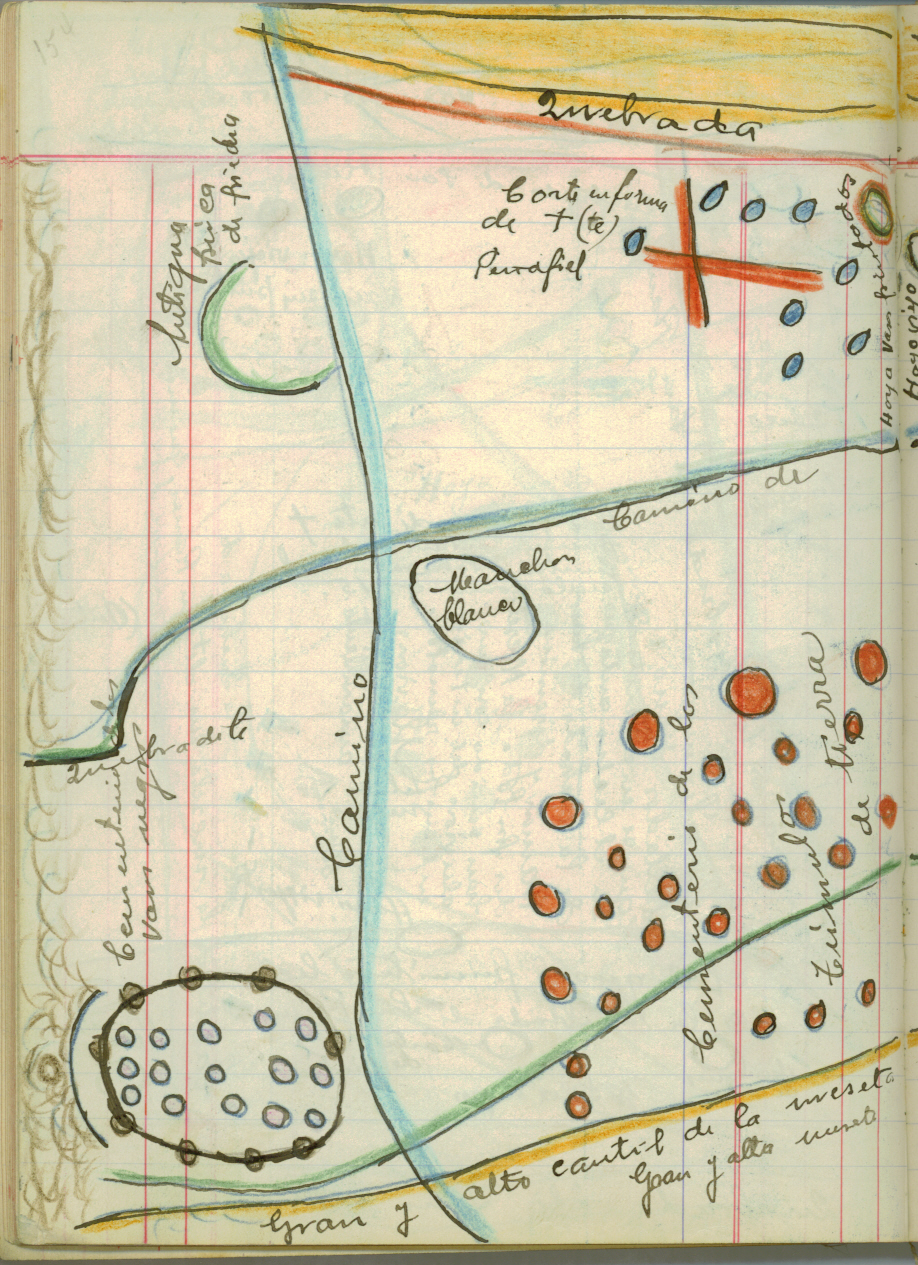 154
Quebrada
Corte en forma
de + (te)
Peñafiel
Antigua
pirca
de piedra
Hoya
Camino de
Manchon
blanco
Quebradita
Camino
Cementerio de los
vasos negros
Cementerio de los
túmulos de tierra
Gran y alto cantil de la meseta
Gran y alta meseta